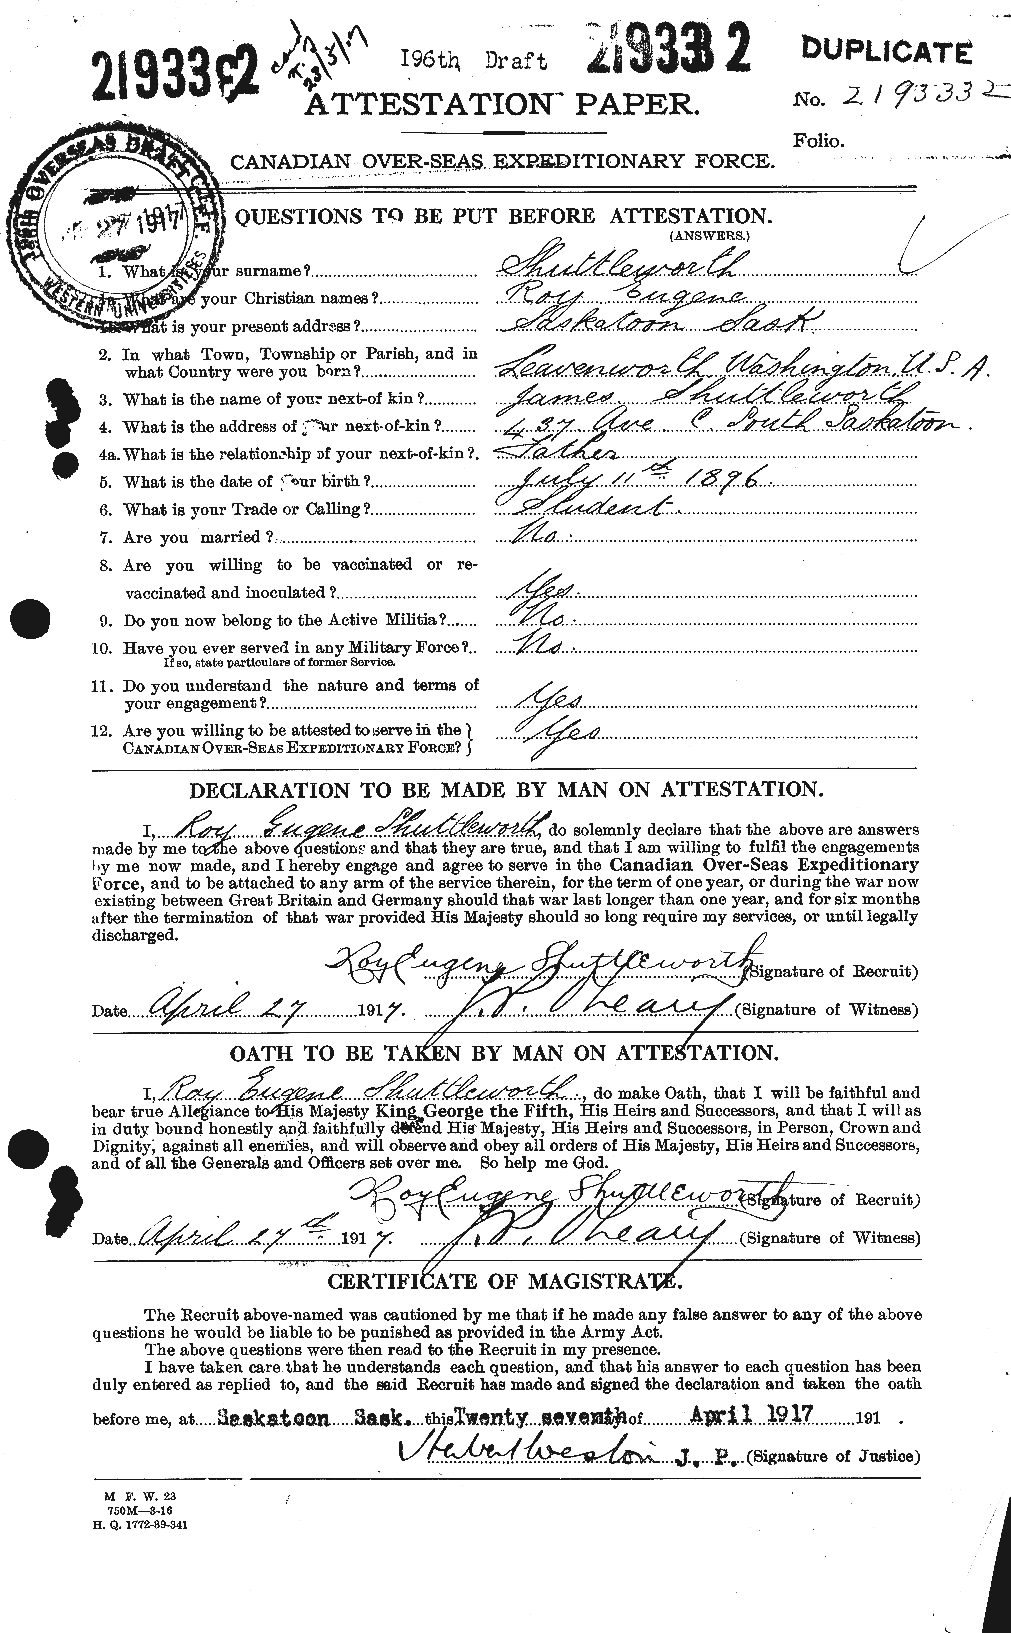 2193332
196th Draft
2193332
DUPLICATE
ATTESTATION PAPER.
No. 2193332
Folio.
CANADIAN OVER-SEAS EXPEDITIONARY FORCE.
196TH OVERSEAS DRAFT C.E.F.
27 1917
WESTERN UNIVERSITIES
QUESTIONS TO BE PUT BEFORE ATTESTATION.
(ANSWERS.)
1. What is your surname? Shuttleworth
What are your Christian names? Roy Eugene
What is your present address? Saskatoon Sask
2. In what Town, Township or Parish, and in
what Country were you born? Leavenworth Washington U.S.A.
3. What is the name of your next-of kin? James Shuttleworth
4. What is the address of your next-of-kin? 437 Ave C South Saskatoon.
4a. What is the relationship of your next-of-kin? Father
5. What is the date of your birth? July 11th 1896.
6. What is your Trade or Calling? Student.
7. Are you married? No.
8. Are you willing to be vaccinated or re-
vaccinated and inoculated? Yes.
9. Do you now belong to the Active Militia? No.
10. Have you ever served in any Military Force? No.
If so, state particulars of former Service.
11. Do you understand the nature and terms of
your engagement? Yes
12. Are you willing to be attested to serve in the
CANADIAN OVER-SEAS EXPEDITIONARY FORCE? Yes
DECLARATION TO BE MADE BY MAN ON ATTESTATION.
I, Roy Eugene Shuttleworth, do solemnly declare that the above are answers
made by me to the above questions and that they are true, and that I am willing to fulfil the engagements
by me now made, and I hereby engage and agree to serve in the Canadian Over-Seas Expeditionary
Force, and to be attached to any arm of the service therein, for the term of one year, or during the war now
existing between Great Britain and Germany should that war last longer than one year, and for six months
after the termination of that war provided His Majesty should so long require my services, or until legally
discharged.
Roy Eugene Shuttleworth (Signature of Recruit)
Date April 27 1917. J.P. O'Leary (Signature of Witness)
OATH TO BE TAKEN BY MAN ON ATTESTATION.
I, Roy Eugene Shuttleworth, do make Oath, that I will be faithful and
bear true Allegiance to His Majesty King George the Fifth, His Heirs and Successors, and that I will as
in duty bound honestly and faithfully defend His Majesty, His Heirs and Successors, in Person, Crown and
Dignity, against all enemies, and will observe and obey all orders of His Majesty, His Heirs and Successors,
and of all the Generals and Officers set over me. So help me God.
Roy Eugene Shuttleworth (Signature of Recruit)
Date April 27th 1917. J.P. O'Leary (Signature of Witness)
CERTIFICATE OF MAGISTRATE.
The Recruit above-named was cautioned by me that if he made any false answer to any of the above
questions he would be liable to be punished as provided in the Army Act.
The above questions were then read to the Recruit in my presence.
I have taken care that he understands each question, and that his answer to each question has been
duly entered as replied to, and the said Recruit has made and signed the declaration and taken the oath
before me, at Saskatoon Sask. this Twenty seventh of April 1917 191 .
Herbert Weston J. P. (Signature of Justice)
M F. W. 23
750M—8-16
H. Q. 1772-39-341